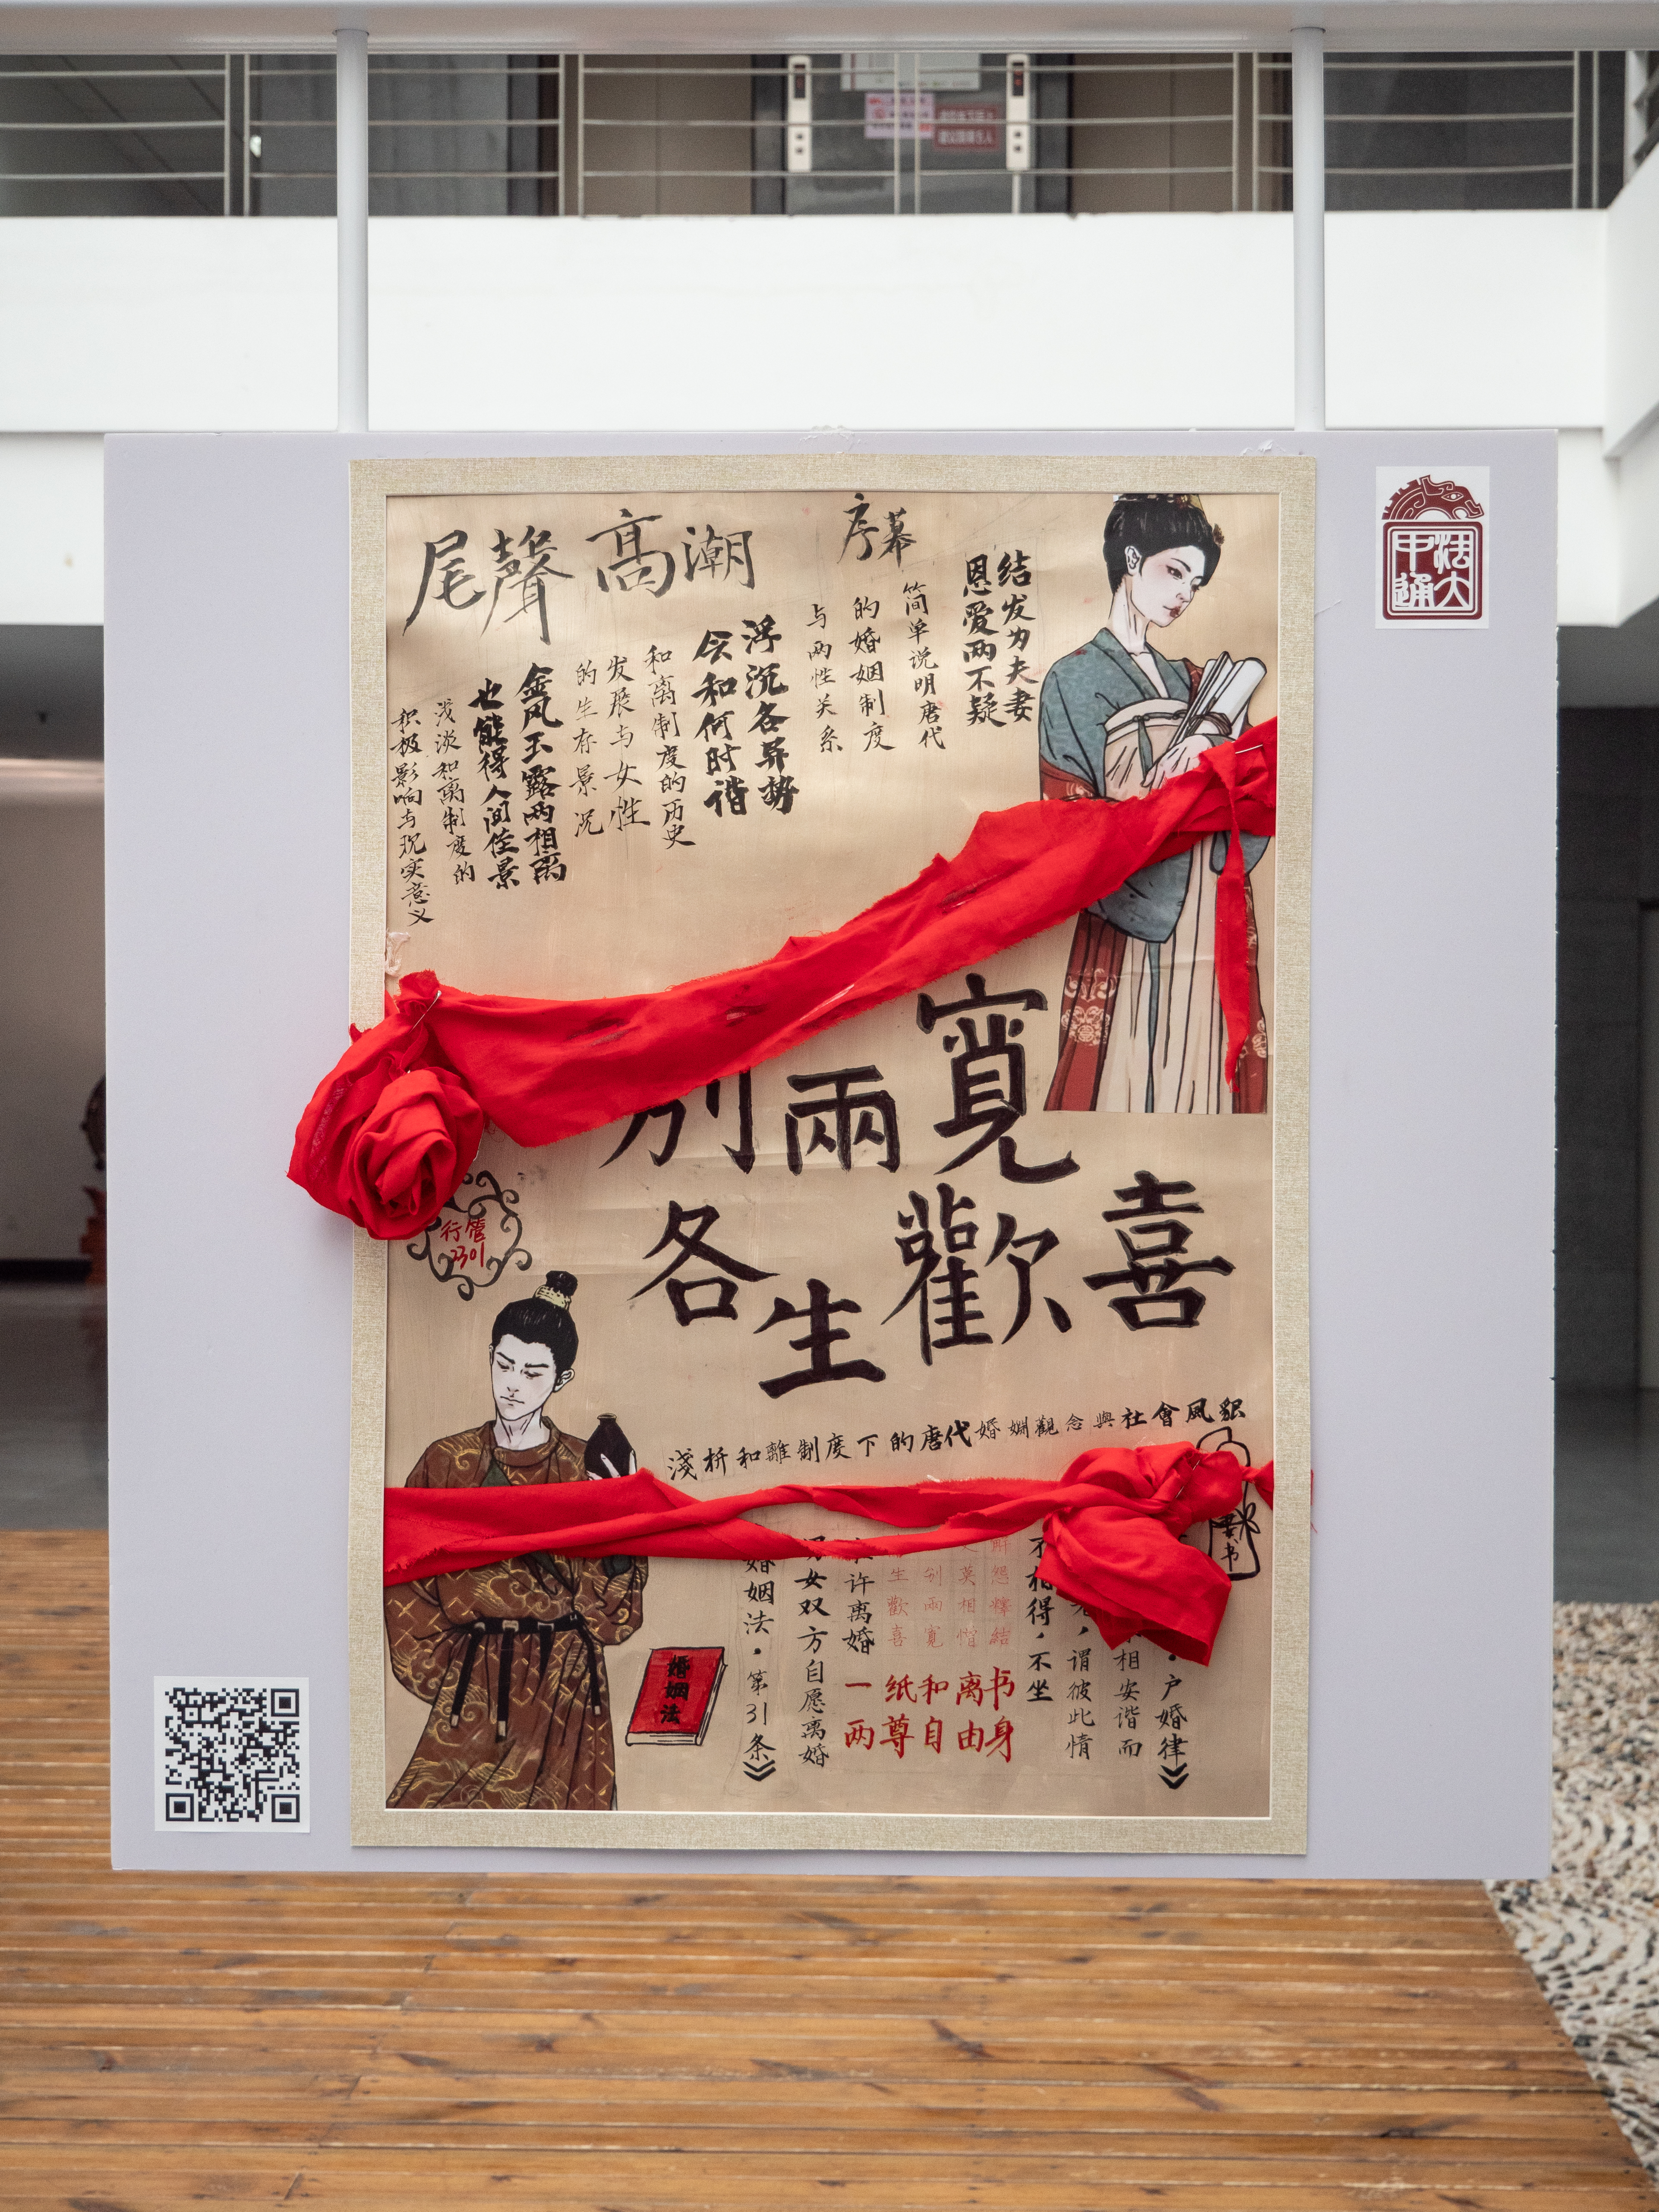 序幕
结发为夫妻
恩爱两不疑
简单说明唐代
的婚姻制度
与两性关系
高潮
浮沉各异势
会和何时谐
和离制度的历史
发展与女性
的生存景况
尾聲
金风玉露两相离
也能得人间佳景
浅淡和离制度的
积极影响与现实意义
中法
通大
别兩寬
各生歡喜
行管
2301
淺析和離制度下的唐代婚姻觀念與社會風貌
书
户婚律》
相安谐而
谓彼此情
不相得，不坐
解怨釋結
莫相憎
别兩寬
生歡喜
一纸和离书
两尊自由身
许离婚
男女双方自愿离婚
婚姻法·第31条》
婚姻法